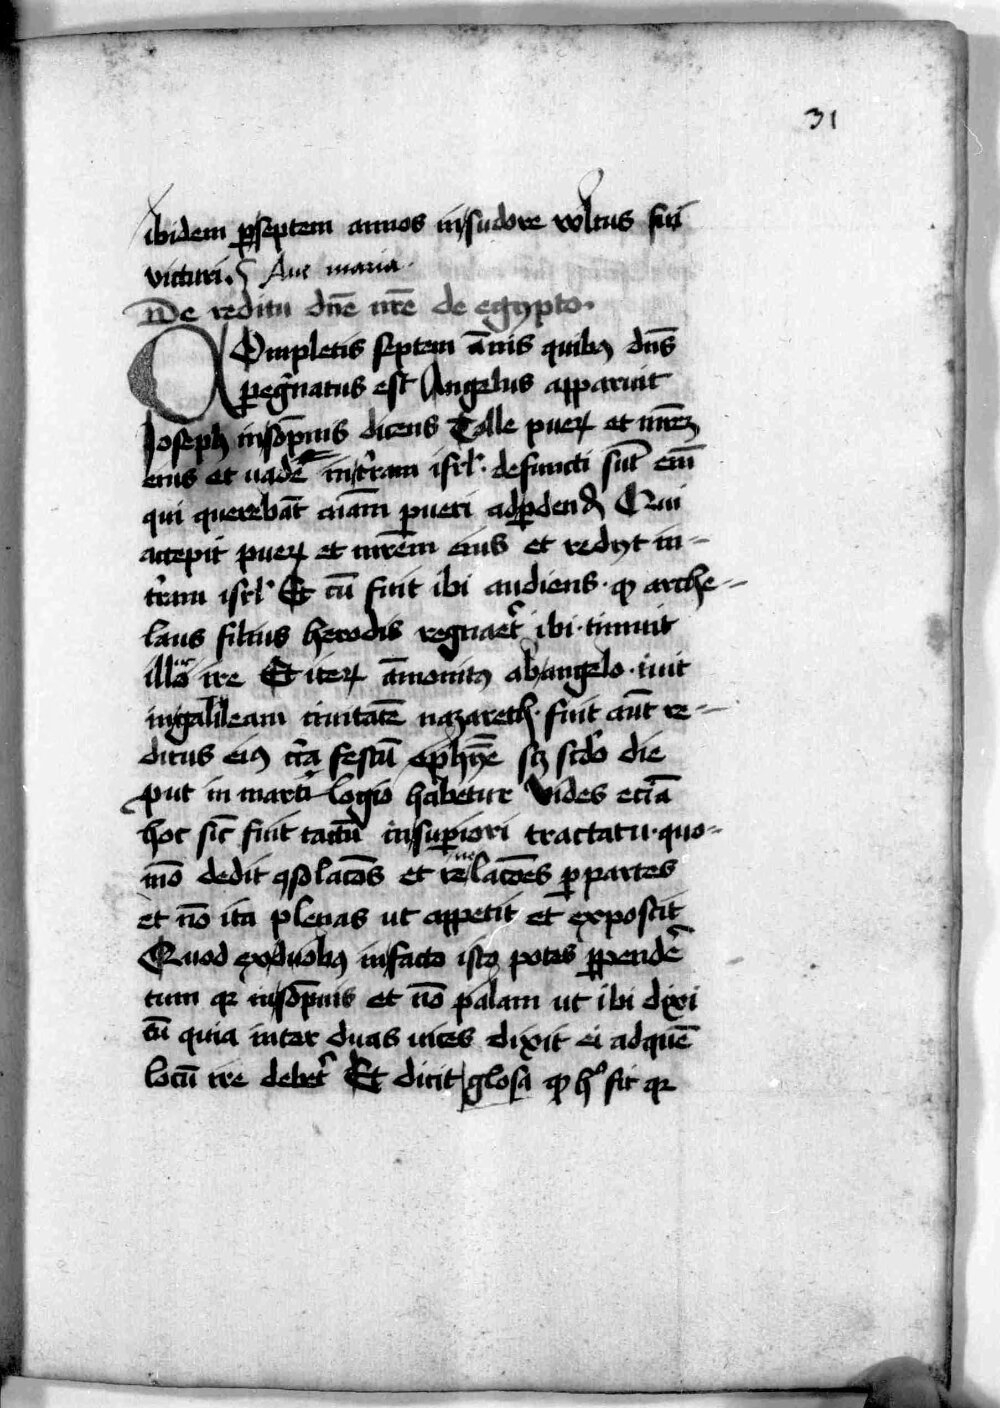 31
ibidem ꝑ septem annos in sudore wltus sui
victuri. § Aue maria.
De reditu dn̄e nr̄e de egypto.
COmpletis septem ānis quibꝫ dn̄s
ꝑegͥnatus est Angelus apparuit
Joseph in sōpnis dicens Tolle pueꝝ et mr̄em
eius et uade in tr̄am isrl̓. defuncti sūt enī
qui querebāt aīam pueri ad ꝑdendū Qui
accepit pueꝝ et mr̄em eius et redyt in=
tr̄am isrl̓ Et cū fuit ibi audiens ꝙ arche=
laus filius herodis regnaet̓ ibi timuit
illuc ire Et iteꝝ āmonitꝫ ab angelo iuit
in galileam ciuitatē nazareth. fuit aūt re=
ditus eiꝫ cͥca festū ephȳe scꝫ scd̓o die
ꝓut in marti logio habetur Vides eciā
hoc sic̄ fuit tactū in superiori tractatu quo=
mō dedit ꝯsolacōes et reuelacōes ꝑ partes
et nō ita plenas ut appetit et exposcit
Quod ex duobꝫ in facto isto potes ꝑpendē
tum qꝛ in sōpnis et nō palam ut ibi dixi
tū quia inter duas uices dixit ei ad quē
locū ire debet̓ Et dicit glosa ꝙ hͦ fit qꝛ